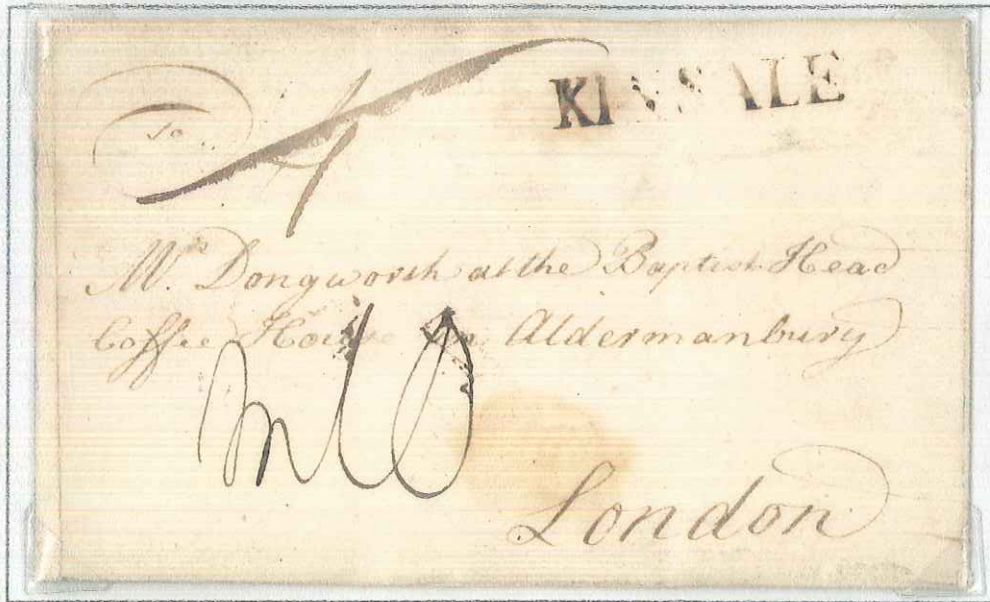 KINSALE
To
4
Mrs. Dongworth at the Baptist Head
Coffee House in Aldermanbury
London